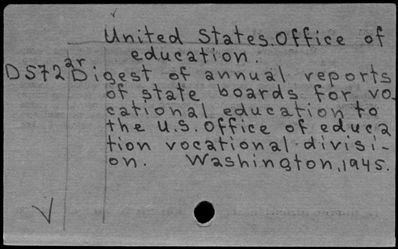 United States. Office of
education.
D572ar Digest of annual reports
of state boards for vo-
cational education to
the U.S. Office of educa
tion vocational divisi-
on. Washington, 1945.